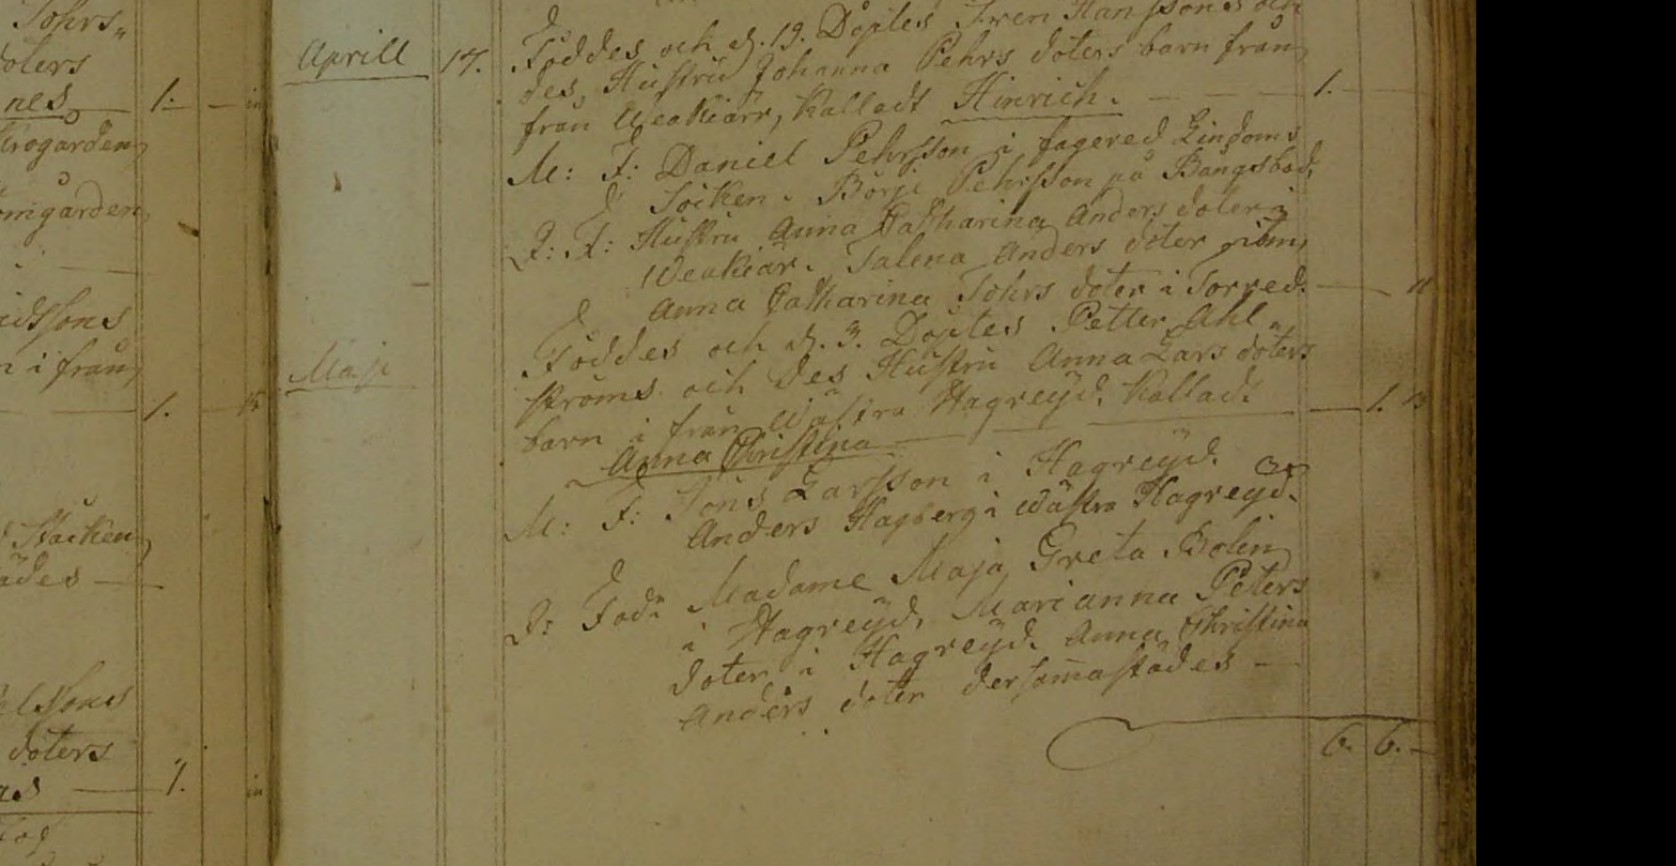 Johrs„
doters
nes 1:
Krogården
omgården
idssons
n i från
1.
Stacken
ädes
elssons
doters
1.
Aprill 17. Föddes och d. 19. Döptes Swen Hanssons och
des Hustru Johanna Pehrs doters barn från
från Weakiärr, kalladt Hinrich. 1.
M: F: Daniel Pehrsson i fagered Lindoms
Socken. Börje Pehrsson på Bångsbod.
Q: F: Hustru Anna Catharina Anders doter i
Weakiär. Talena Anders doter ibm,
Anna Catharina Johrs doter i Torred. 11
Maji Föddes och d. 3. Döptes Petter Ahl„
ströms och des Hustru Anna Lars doters
barn i från Wästra Hagreÿd. Kallad. 1. 13
Anna Christina
M: F: Jöns Larsson i Hagreÿd.
Anders Hagberg i Wästra Hagreÿd.
Q: Fad: Madame Maja Greta Bolin
i Hagreÿd, Marianna Peters
doter i Hagreÿd. Anna Christina
Anders doter dersam̄astädes
6. 6.